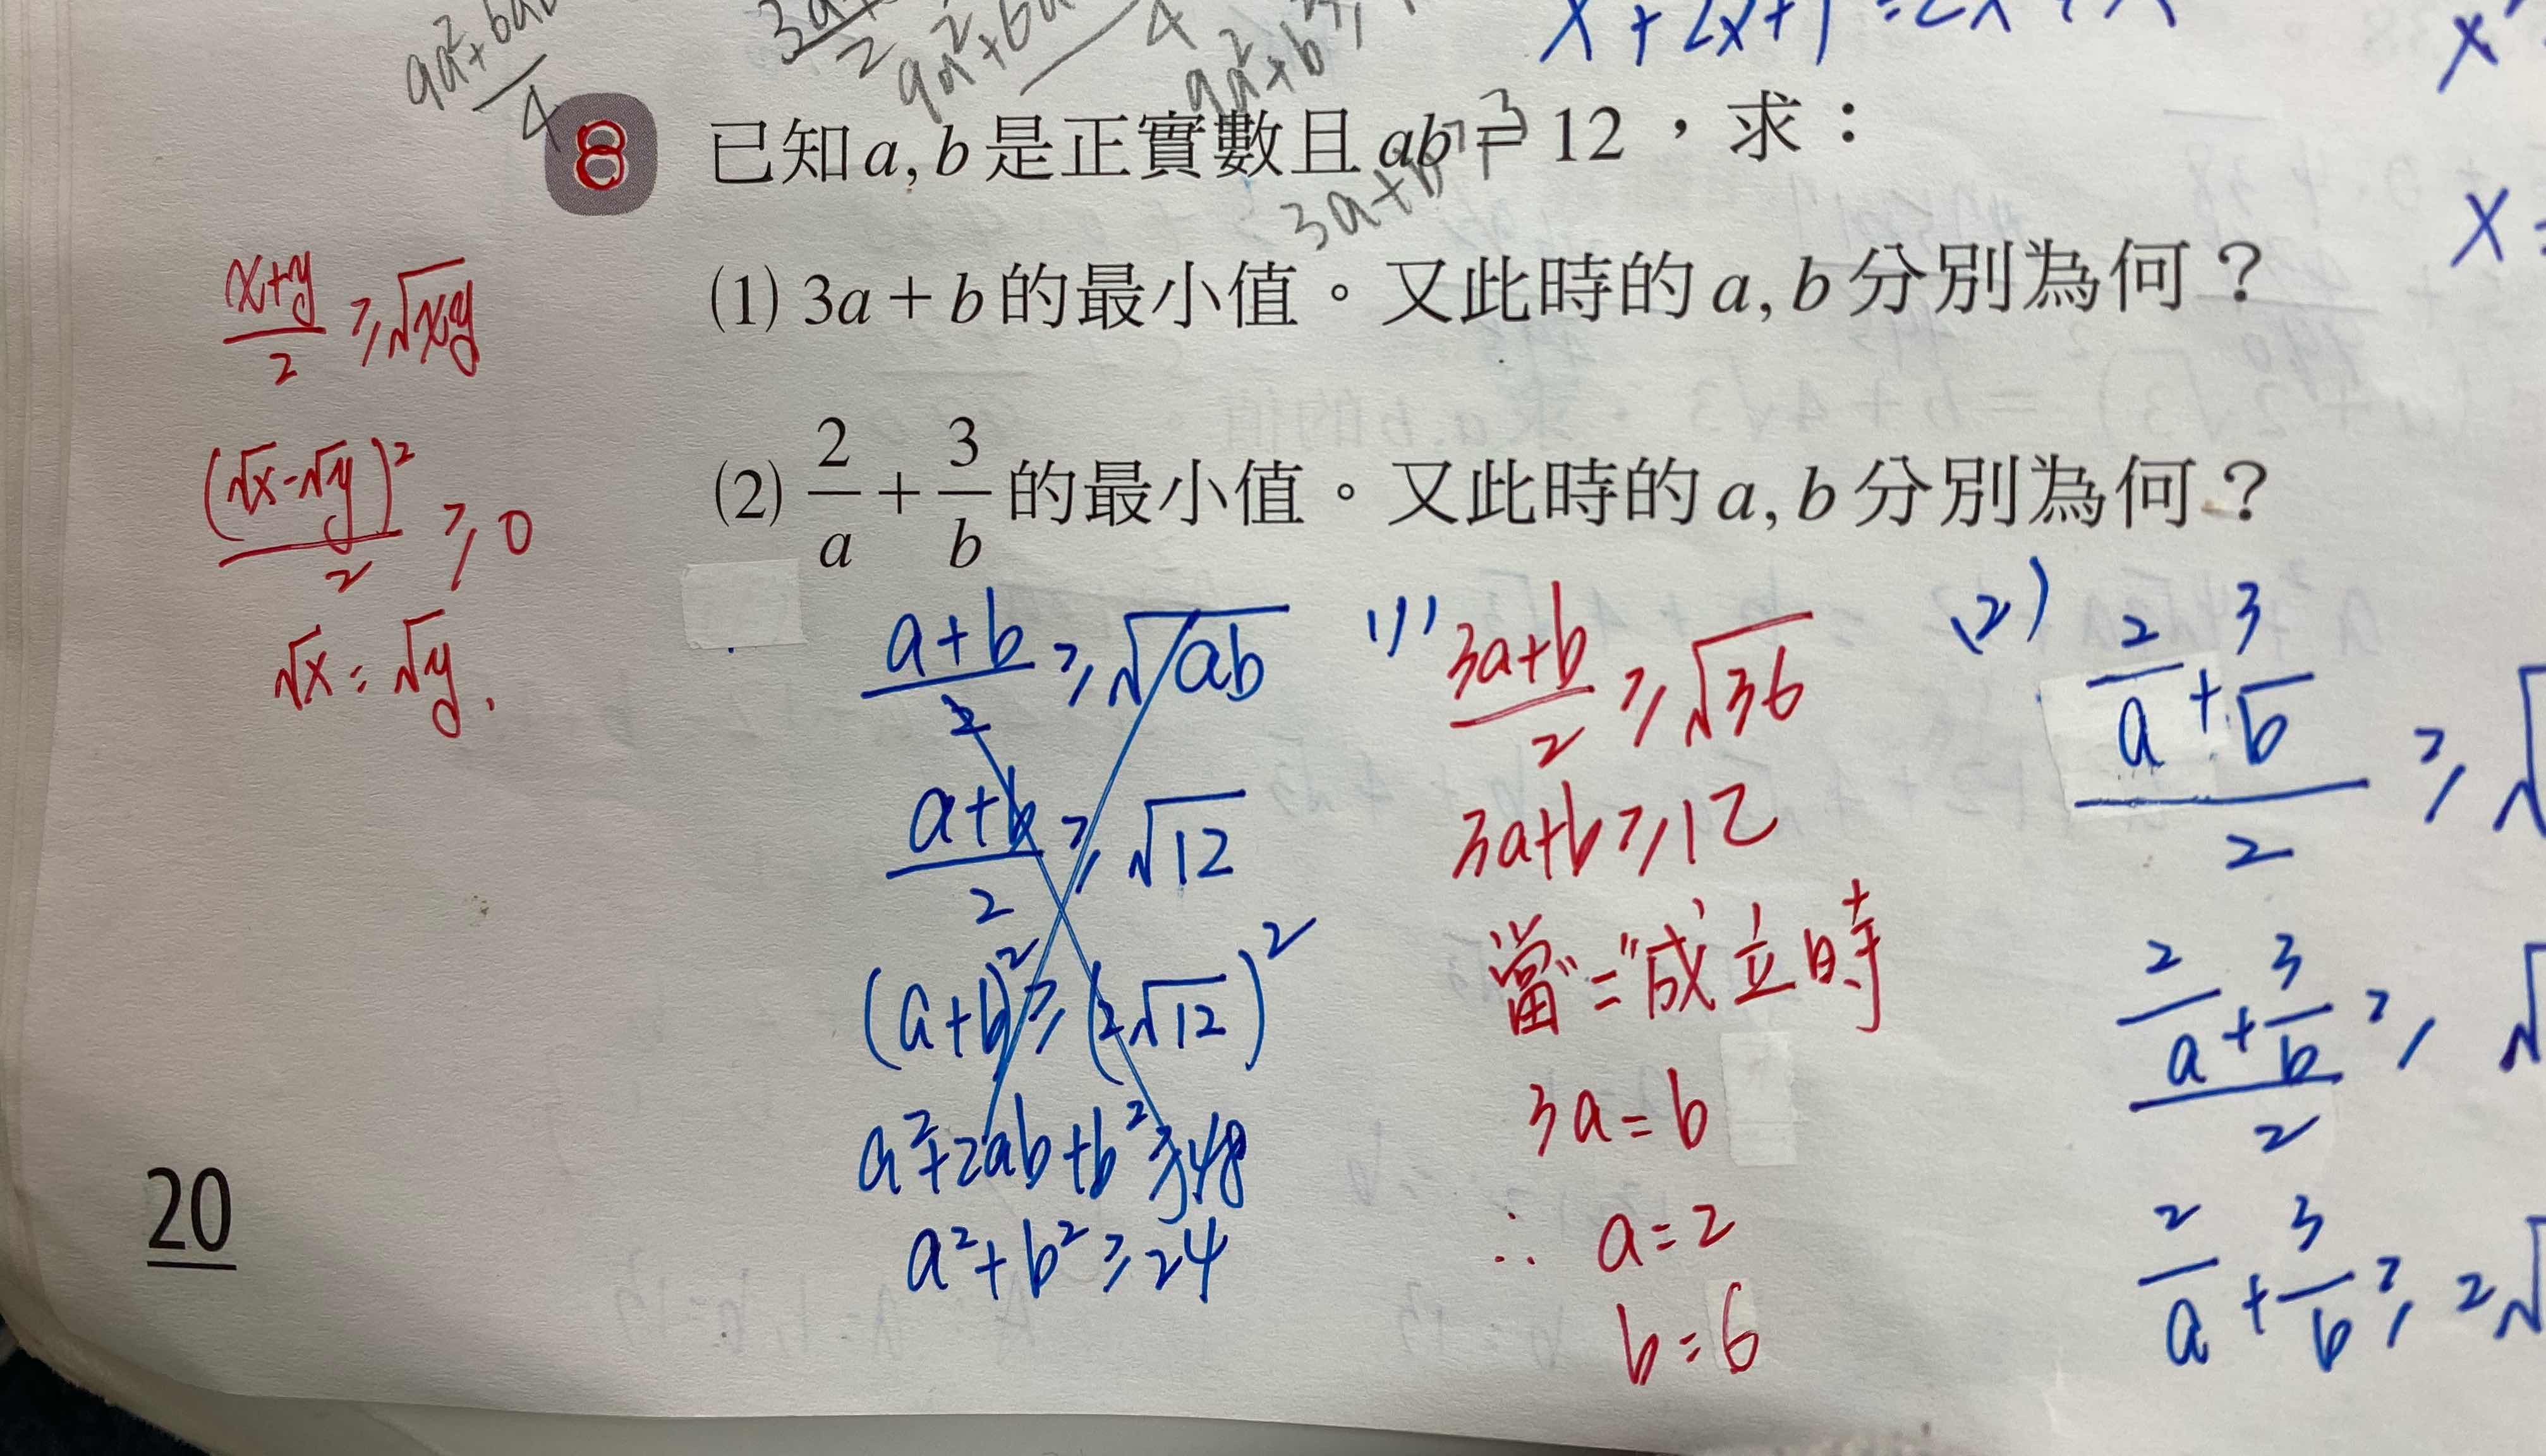 9a²+6a
4
3a+
2
9a²+6a
4
9a²+b²
x²+2x+1=2x
8 已知a, b是正實數且ab = 12，求：
3a+b
(1) 3a + b的最小值。又此時的a, b分別為何？
(2) 2/a + 3/b 的最小值。又此時的a, b分別為何？
(x+y)/2 ≥ √xy
(√x-√y)²/2 ≥ 0
√x = √y.
(a+b)/2 ≥ √ab
(a+b)/2 ≥ √12
(a+b)² ≥ (2√12)²
a²+2ab+b² ≥ 48
a²+b² ≥ 24
(1) (3a+b)/2 ≥ √36
3a+b ≥ 12
當"="成立時
3a = b
∴ a = 2
b = 6
(2) (2/a + 3/b)/2 ≥ √
(2/a + 3/b)/2 ≥ √
2/a + 3/b ≥ 2√
20